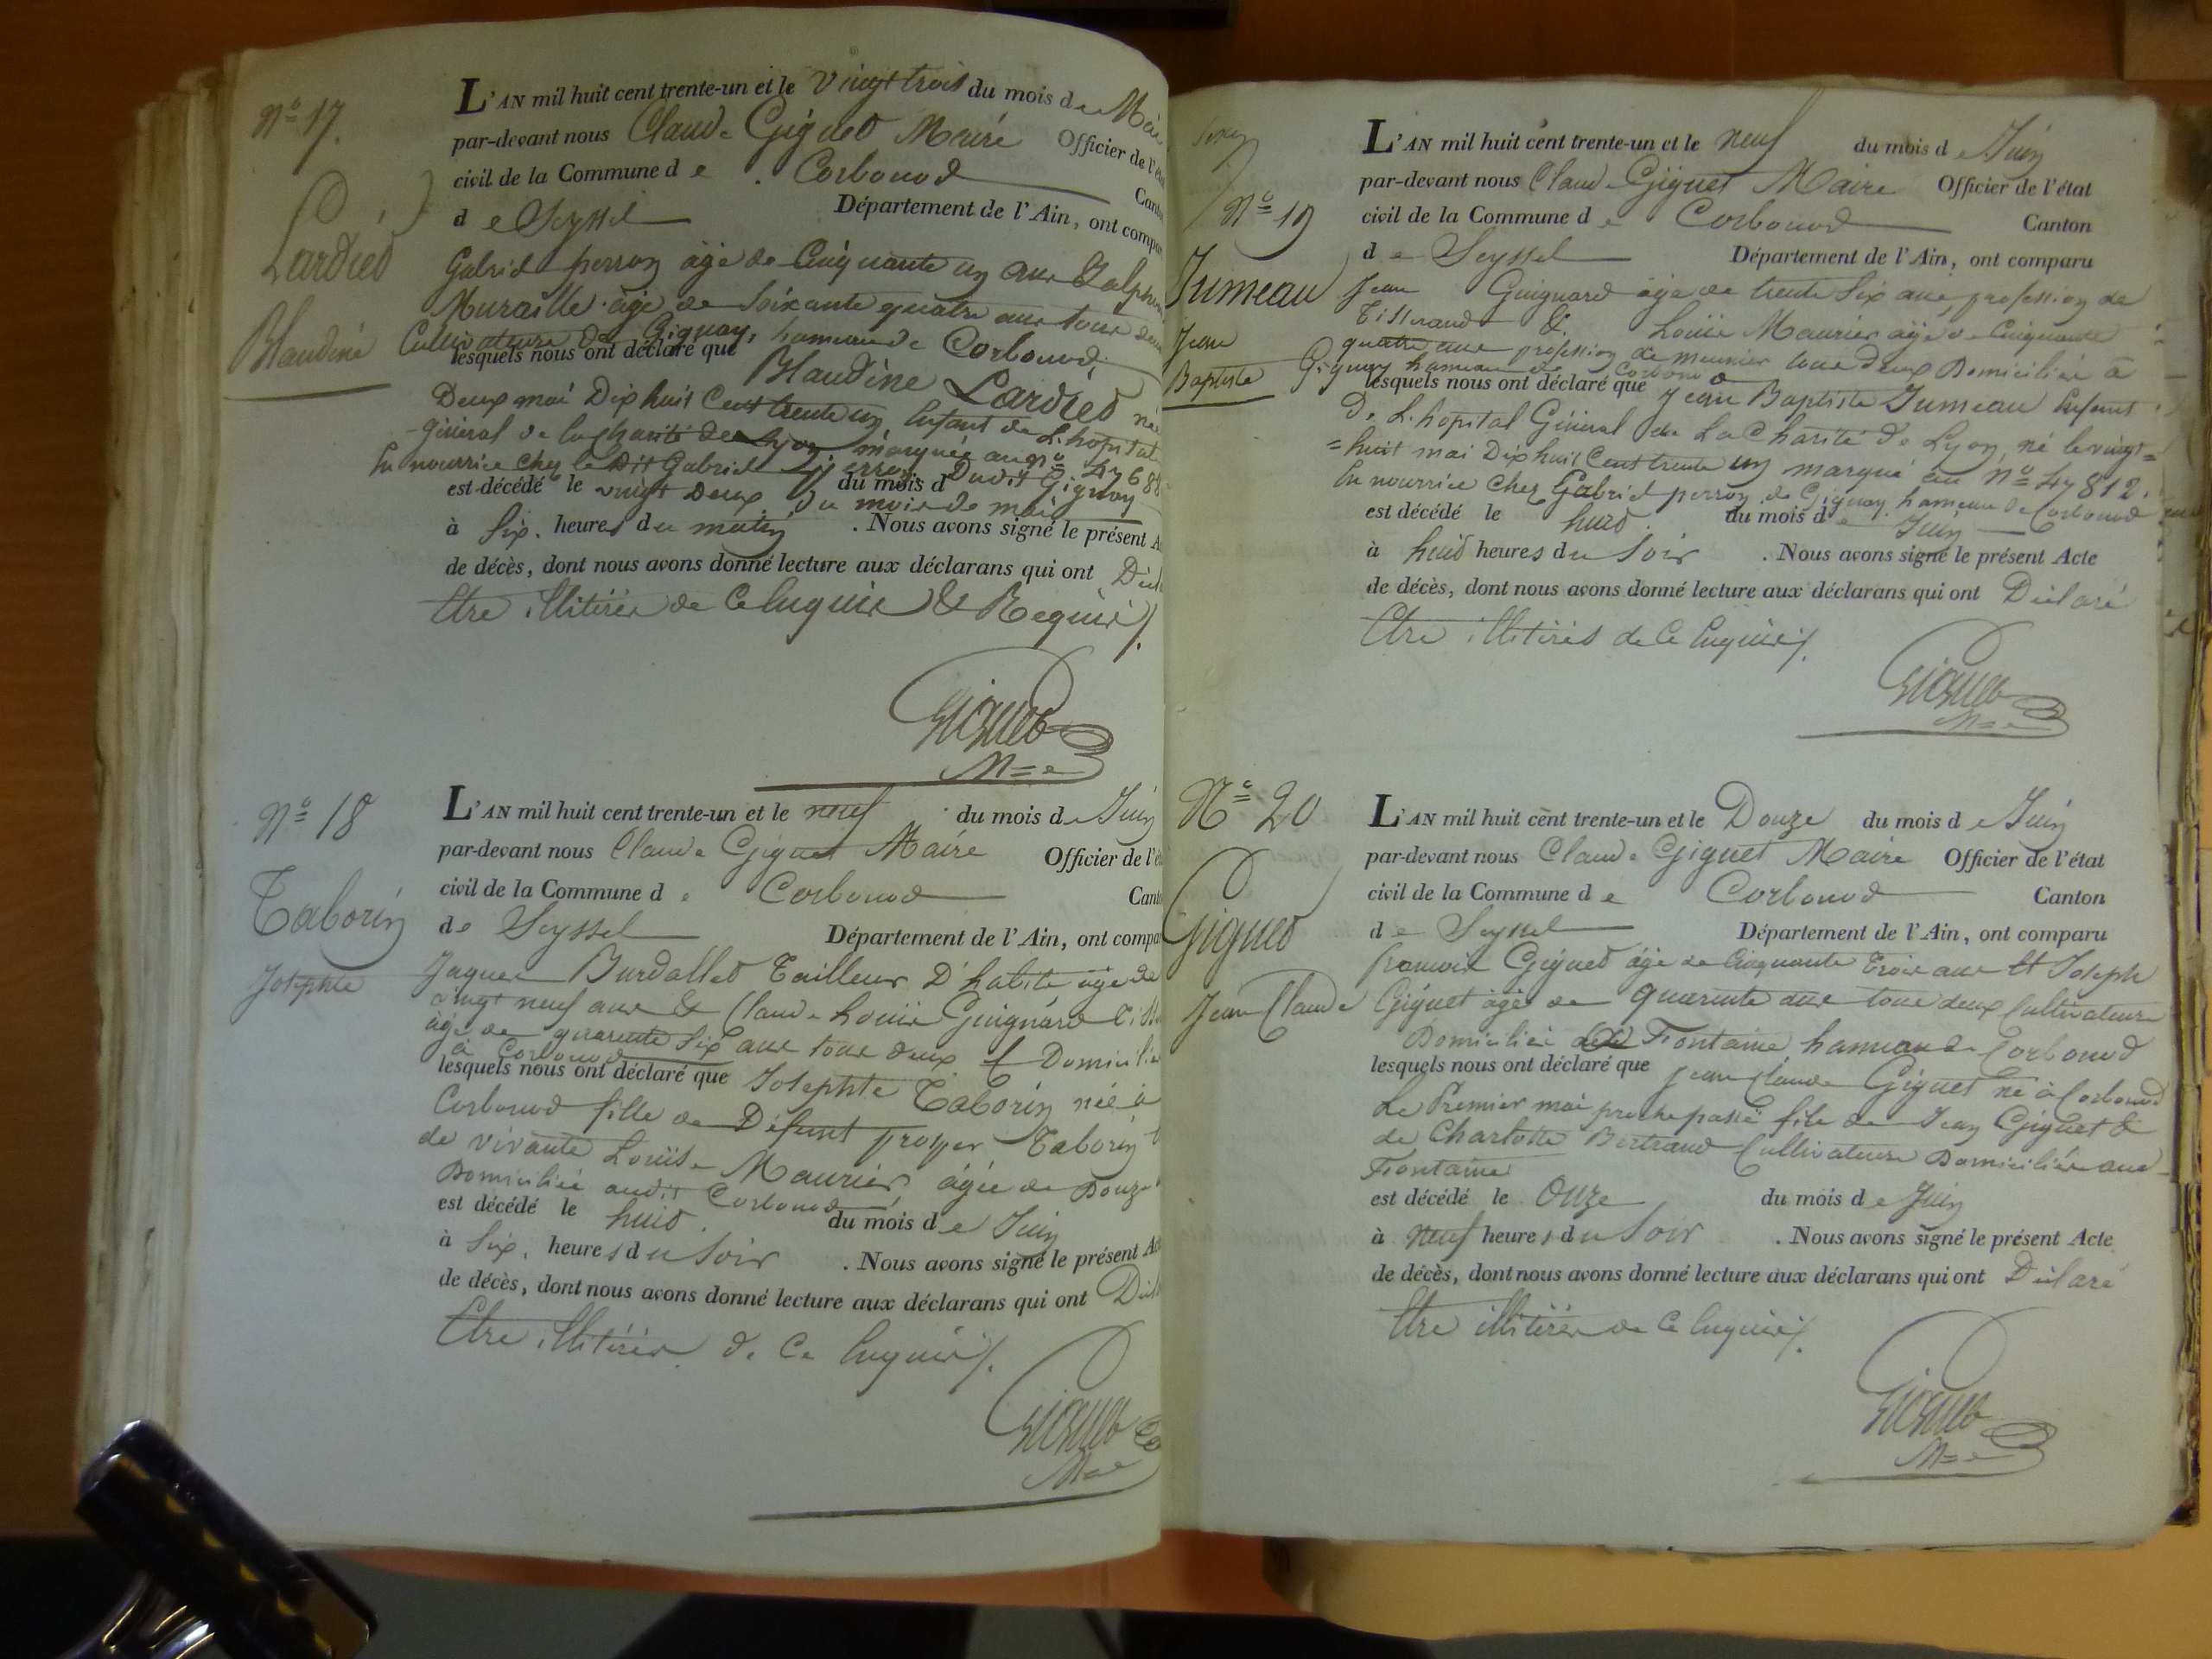 N.º 17.
Lardiéd
Blandine
L'AN mil huit cent trente-un et le vingt trois du mois de Mai
par-devant nous Claude Giguet Maire Officier de l'éta
civil de la Commune de Corbonod Canton
de Seyssel Département de l'Ain, ont compa
Gabriel perron âgé de Cinquante un ans &
Muraille âgé de Soixante quatre ans tous deux
Cultivateurs de Gignay, hameau de Corbonod,
lesquels nous ont déclaré que Blandine Lardiéd née
Deux mai Dix huit Cent trente un, Enfant de L'hopital
général de la Charité de Lyon, marquée au nº 47688
En nourrice chez le Dit Gabriel perron Dudit Gignay
est décédé le vingt Deux du mois d du mois de mai
à Six. heures du matin . Nous avons signé le présent A
de décès, dont nous avons donné lecture aux déclarans qui ont Décl
Etre illitérés de Ce Enquis & Requis /.
Giguet
M=e
N.º 18
Taborin
Josephte
L'AN mil huit cent trente-un et le neuf du mois de Juin
par-devant nous Claude Giguet Maire Officier de l'ét
civil de la Commune de Corbonod Cant
de Seyssel Département de l'Ain, ont compa
Jaques Burdallet Tailleur D'habits âgé de
vingt neuf ans & Claude Louis Guignard
âgé de quarente Six ans tous deux Domicilié
à Corbonod
lesquels nous ont déclaré que Josephte Taborin née à
Corbonod fille de Défunt prosper Taborin
de vivante Louise Maurier, âgée de Douze
Domiciliée audit Corbonod
est décédé le huit. du mois de Juin
à Six. heures du Soir . Nous avons signé le présent A
de décès, dont nous avons donné lecture aux déclarans qui ont Décl
Etre illitérés de Ce Enquis /.
Giguet
M=e
Nº 19
Jumeau
Jean
Baptiste
L'AN mil huit cent trente-un et le neuf du mois de Juin
par-devant nous Claude Giguet Maire Officier de l'état
civil de la Commune de Corbonod Canton
de Seyssel Département de l'Ain, ont comparu
Jean Guignard âgé de trente Six ans, profession de
Tisserand & Louis Maurier âgé de Cinquante
quatre ans profession de meunier tous deux Domiciliés à
Gignay hameau de Corbonod
lesquels nous ont déclaré que Jean Baptiste Jumeau Enfant
De L'hopital Général de La Charité de Lyon, né le vingt=
=huit mai Dix huit Cent trente un marqué au nº 47812.
En nourrice chez Gabriel perron de Gignay hameau de Corbonod
est décédé le huit. du mois de Juin
à huit heures du Soir . Nous avons signé le présent Acte
de décès, dont nous avons donné lecture aux déclarans qui ont Déclaré
Etre illitérés de Ce Enquis /.
Giguet
M=e
Nº 20
Giguet
Jean Claude
L'AN mil huit cent trente-un et le Douze du mois de Juin
par-devant nous Claude Giguet Maire Officier de l'état
civil de la Commune de Corbonod Canton
de Seyssel Département de l'Ain, ont comparu
françois Giguet âgé de Cinquante Trois ans Et Joseph
Giguet âgé de quarente ans tous deux Cultivateurs
Domiciliés Fontaine hameau de Corbonod
lesquels nous ont déclaré que jean Claude Giguet né à Corbonod
Le Premier mai proche passé fils de Jean Giguet &
de Charlotte Bertrand Cultivateurs Domiciliés aud
Fontaine
est décédé le Onze du mois de Juin
à neuf heures du Soir . Nous avons signé le présent Acte
de décès, dont nous avons donné lecture aux déclarans qui ont Déclaré
Etre illitérés de Ce Enquis /.
Giguet
M=e